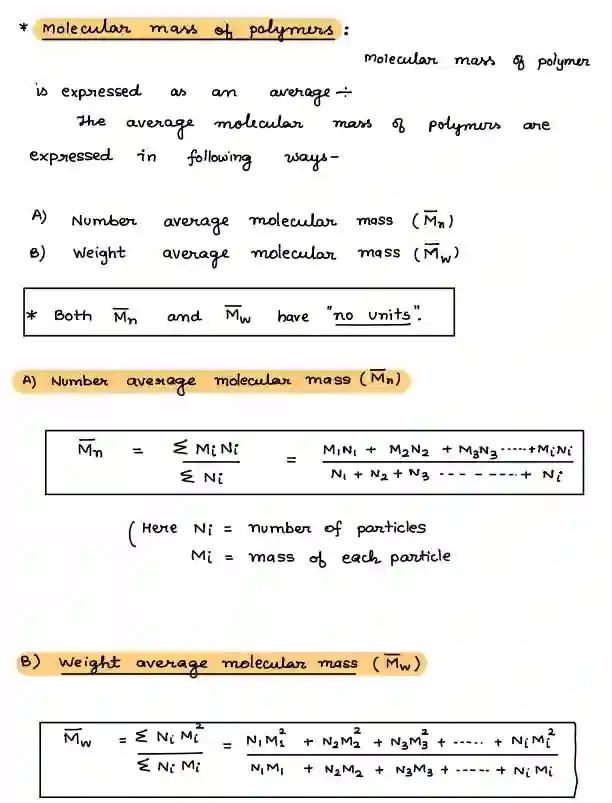 * Molecular mass of polymers :
Molecular mass of polymer
is expressed as an average ÷
The average molecular mass of polymers are
expressed in following ways-
A) Number average molecular mass (M̅n)
B) Weight average molecular mass (M̅w)
* Both M̅n and M̅w have "no units".
A) Number average molecular mass (M̅n)
M̅n = Σ MiNi / Σ Ni = M1N1 + M2N2 + M3N3 ·····+MiNi / N1 + N2 + N3 - - - - - - - -+ Ni
(Here Ni = number of particles
Mi = mass of each particle
B) Weight average molecular mass (M̅w)
M̅w = Σ Ni Mi² / Σ Ni Mi = N1M1² + N2M2² + N3M3² + ----- + NiMi² / N1M1 + N2M2 + N3M3 + ----- + Ni Mi